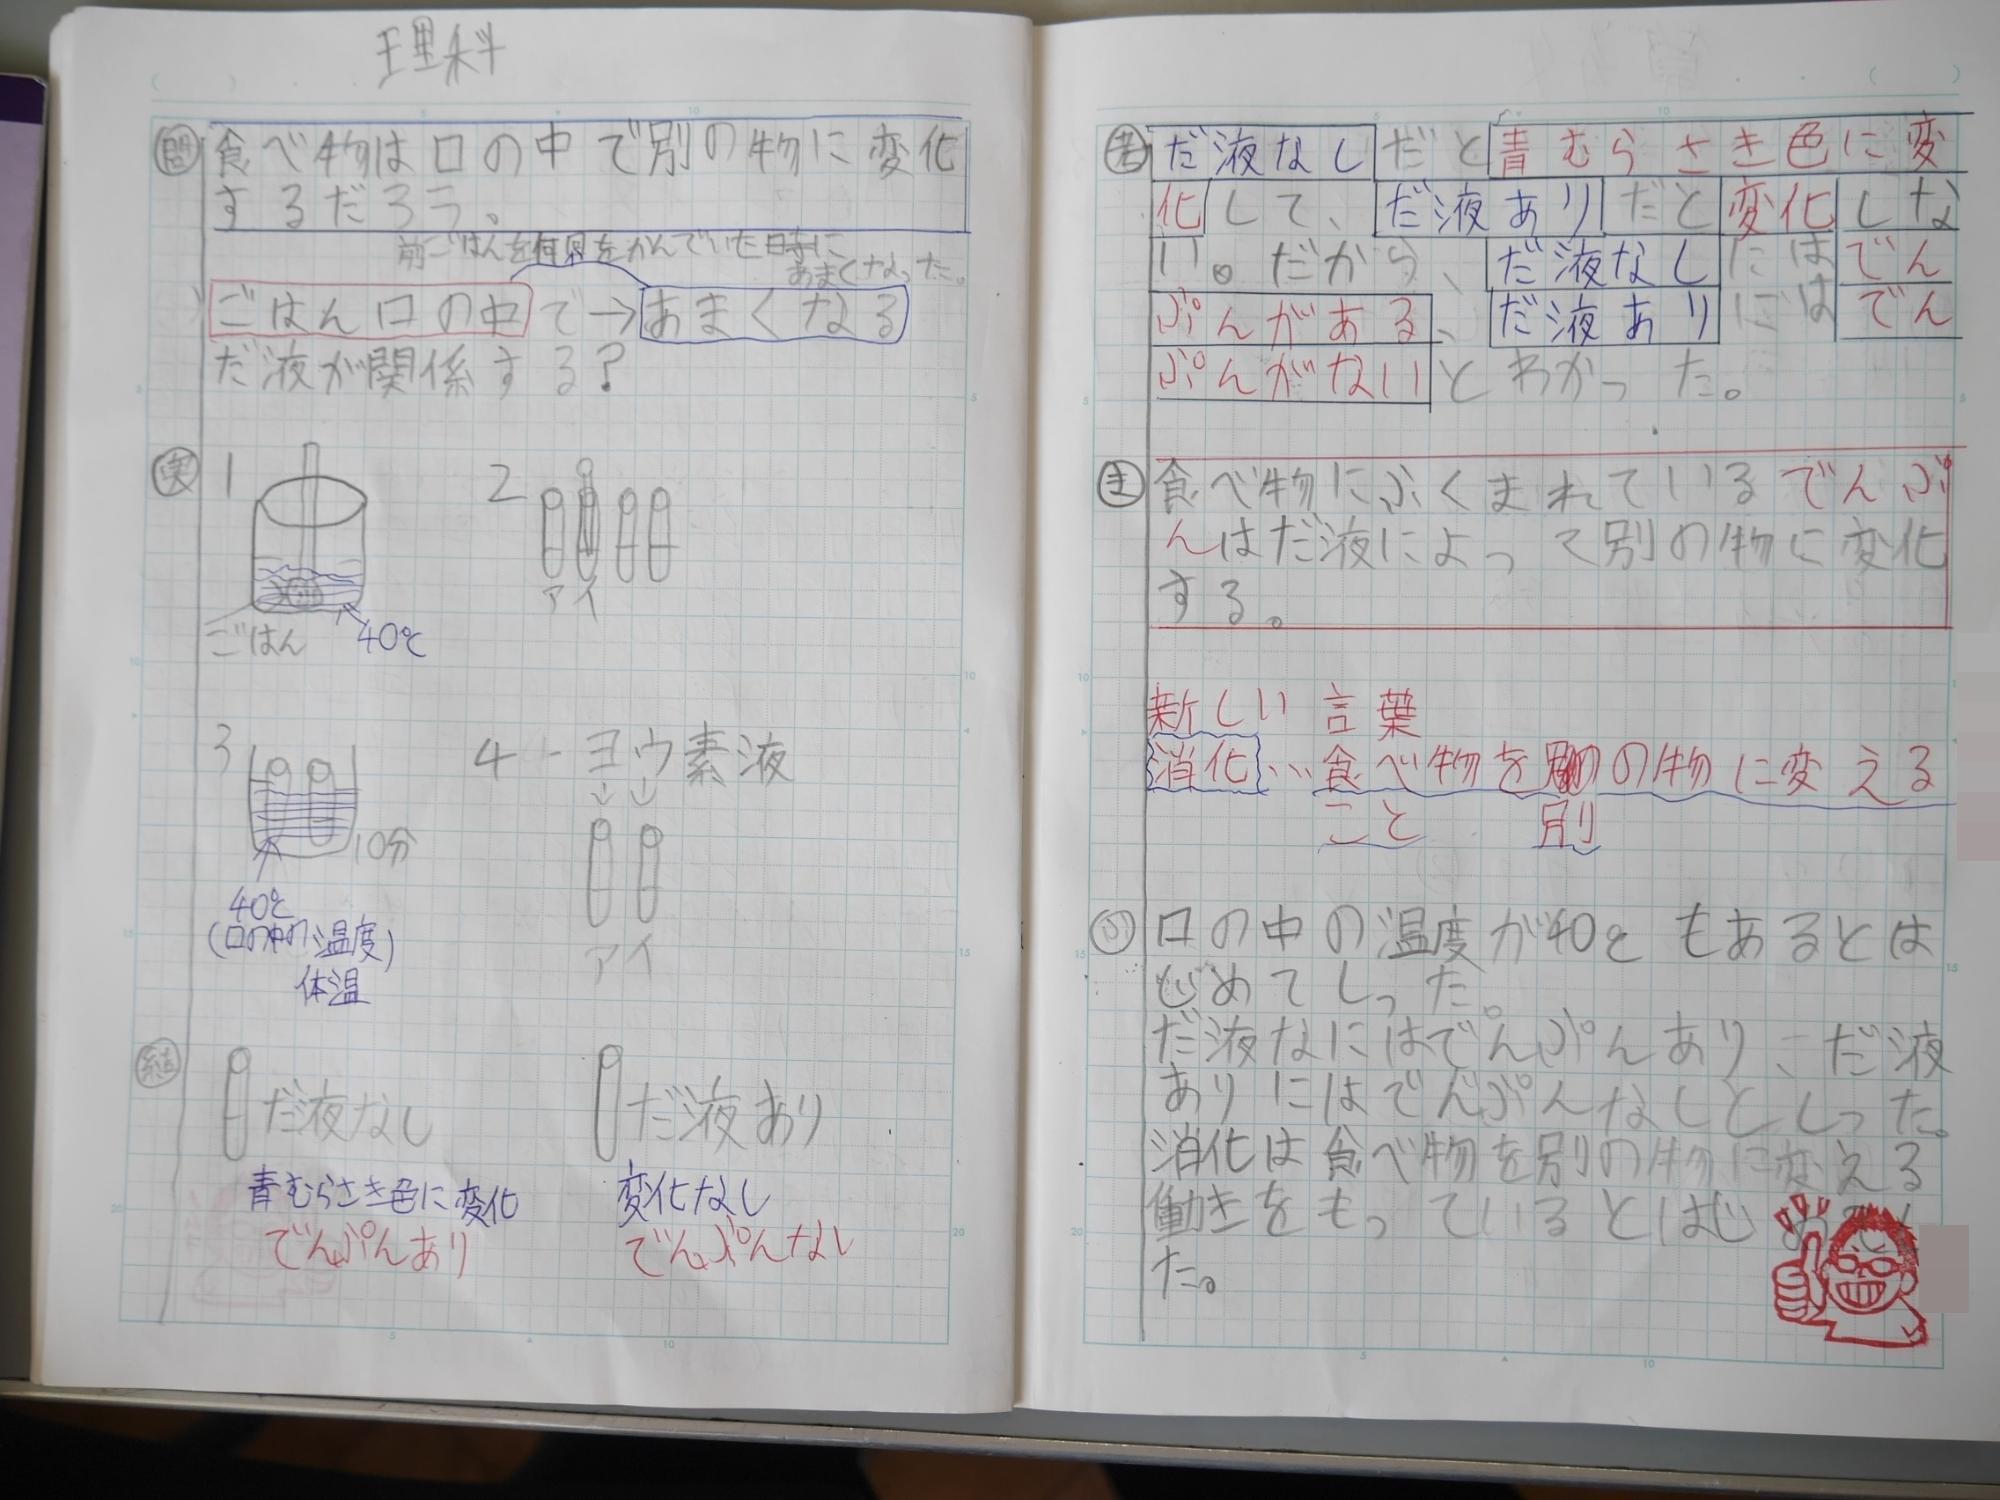 理科
問 食べ物は口の中で別の物に変化
するだろう。
前ごはんを何回をかんでいた時に
あまくなった。
ごはん口の中で→あまくなる
だ液が関係する?
実 1
ごはん
40℃
2
アイ
3
10分
40℃
(口の中の温度)
体温
4 - ヨウ素液
↓ ↓
アイ
結 だ液なし
青むらさき色に変化
でんぷんあり
だ液あり
変化なし
でんぷんなし
考 だ液なしだと青むらさき色に変
化して、だ液ありだと変化しな
い。だから、だ液なしにはでん
ぷんがある、だ液ありにはでん
ぷんがないとわかった。
ま 食べ物にふくまれているでんぷ
んはだ液によって別の物に変化
する。
新しい言葉
消化…食べ物をの物に変える
こと 別
ふ 口の中の温度が40℃もあるとは
じめてしった。
だ液なにはでんぷんあり、だ液
ありにはでんぷんなしとしった。
消化は食べ物を別の物に変える
働きをもっているとはじ
た。